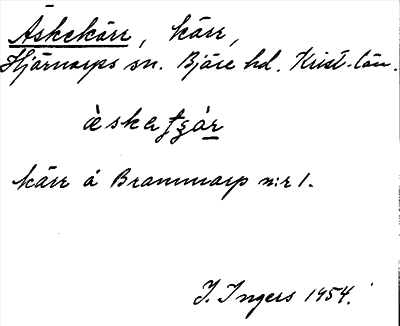 Äskekärr, kärr,
Hjärnarps sn. Bjäre hd. Krist. län.
kärr å Brammarp n:r 1.
I. Ingers 1954.